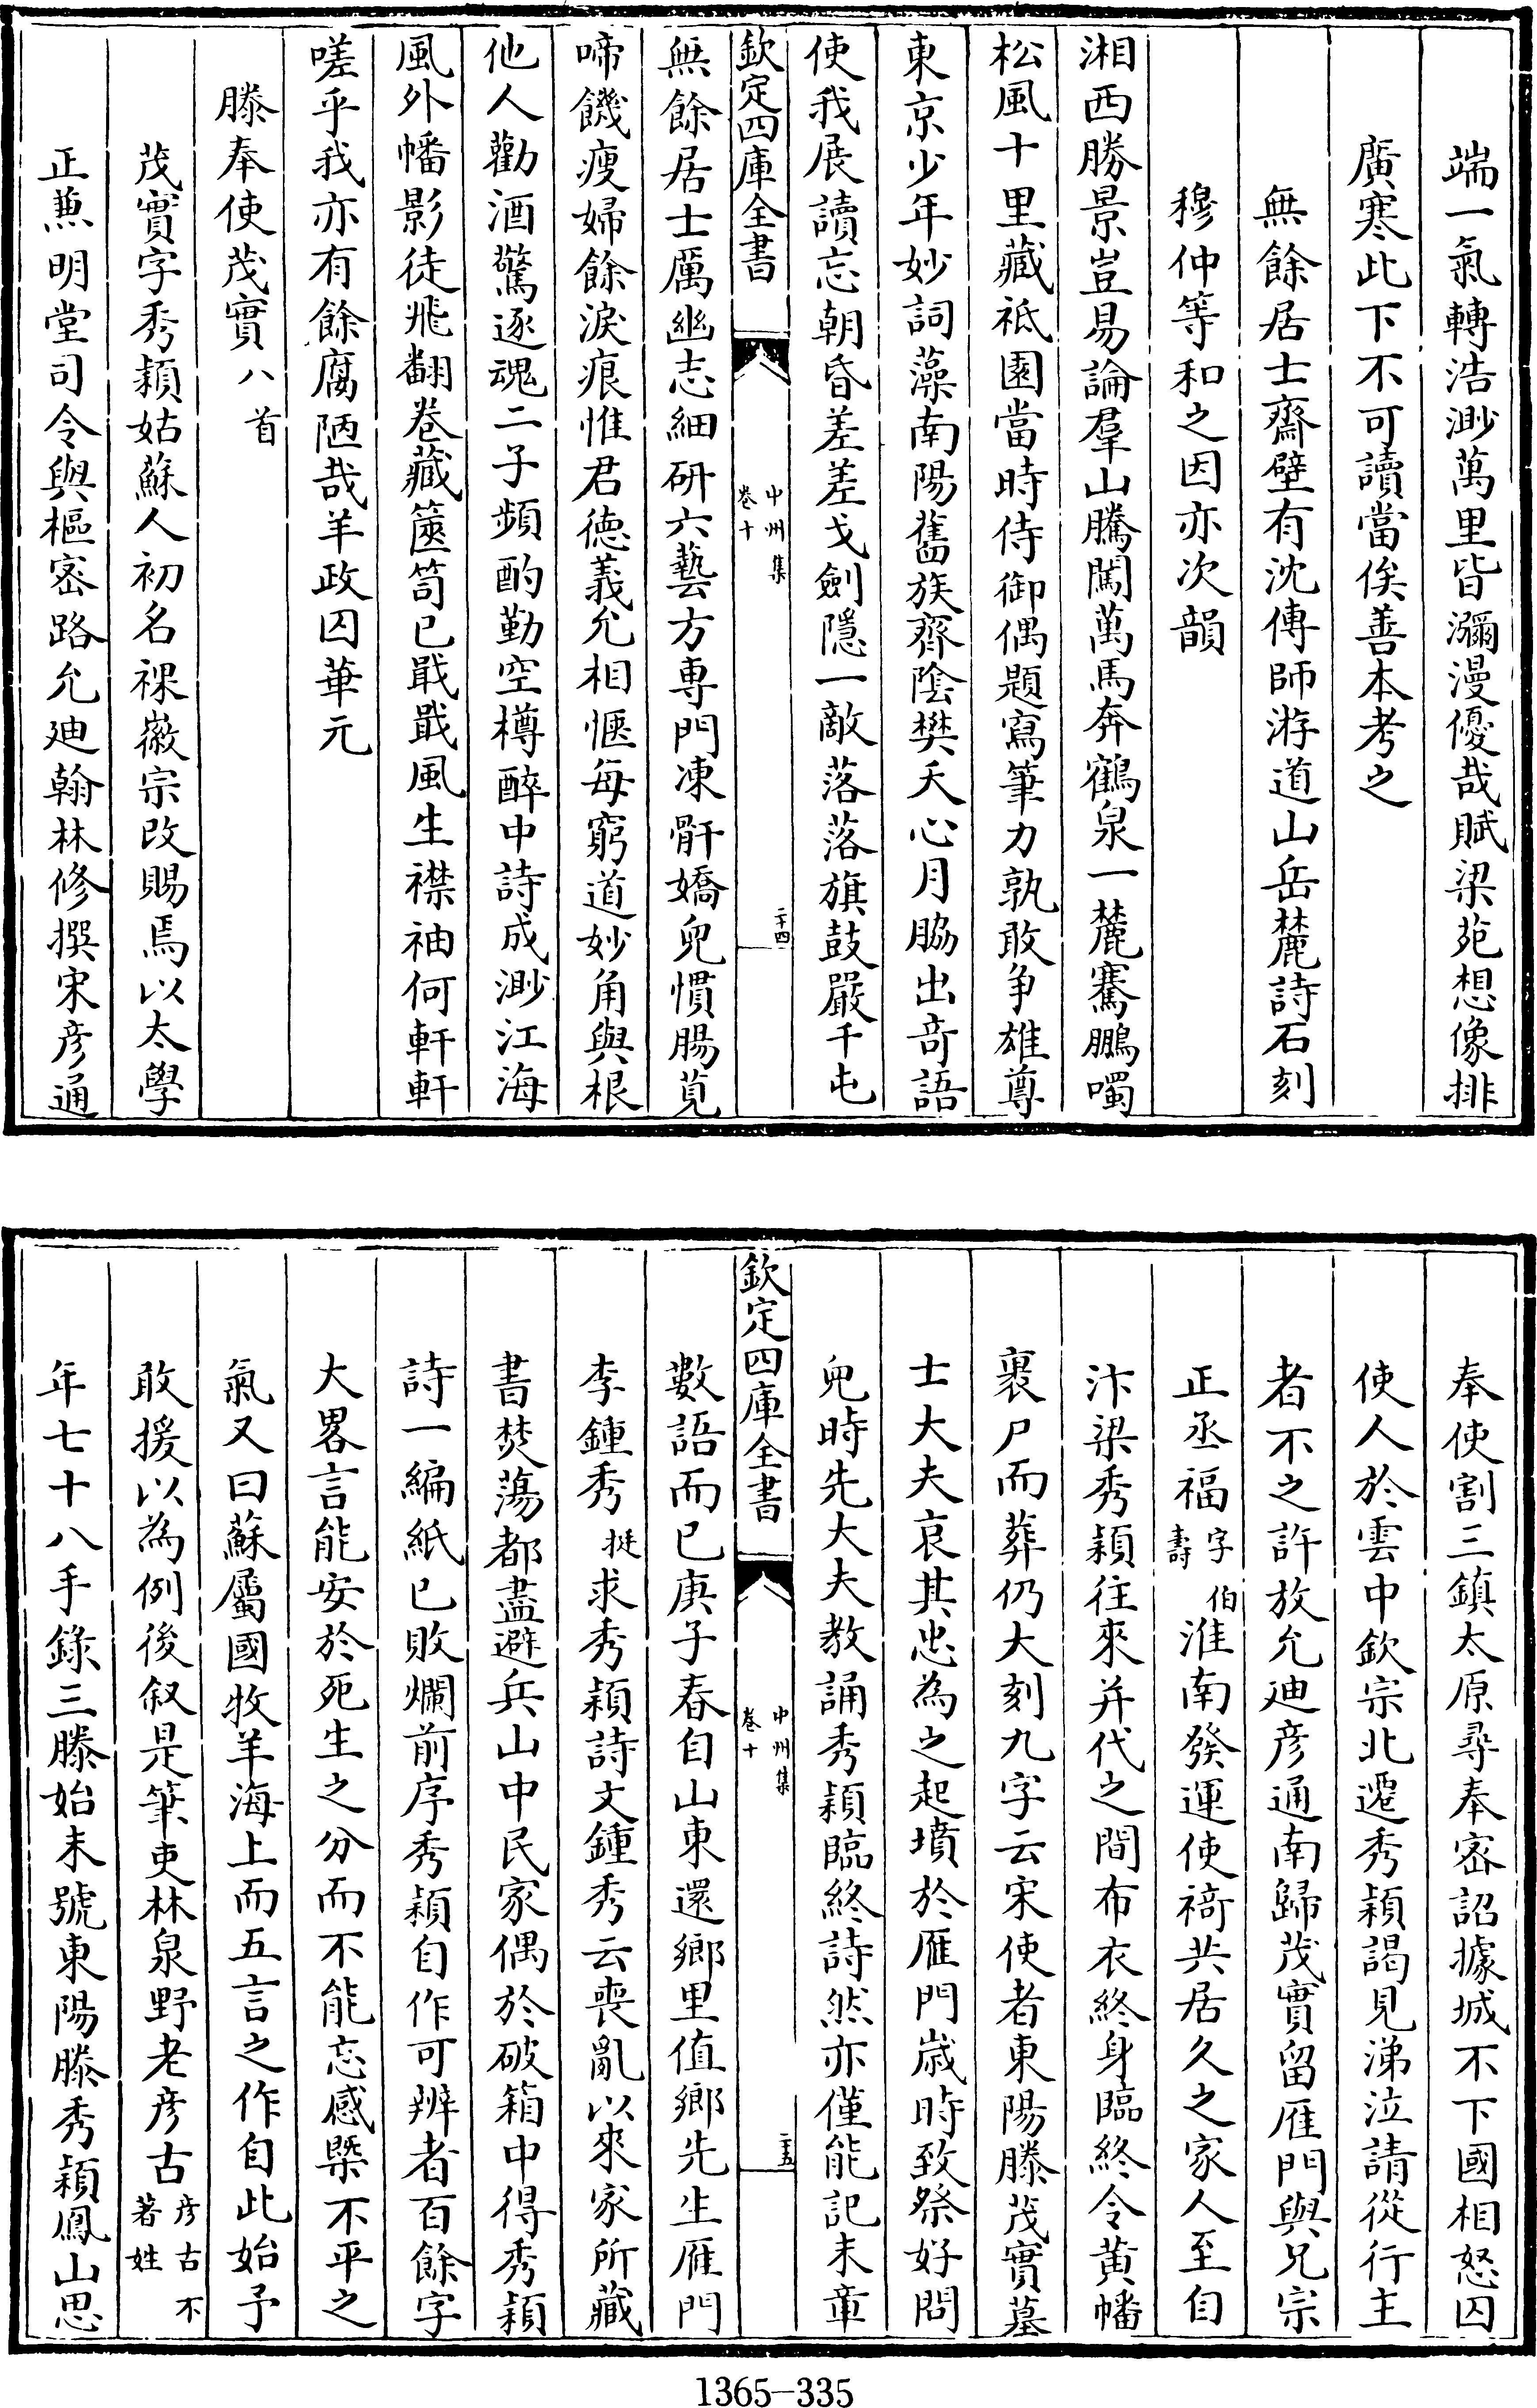 端一氣轉浩渺萬里皆瀰漫優哉賦梁苑想像排
廣寒此下不可讀當俟善本考之
無餘居士齋壁有沈傳師游道山岳麓詩石刻
穆仲等和之因亦次韻
湘西勝景豈易論羣山騰闖萬馬奔鶴泉一麓騫鵬噣
松風十里藏祇園當時侍御偶題寫筆力孰敢争雄尊
東京少年妙詞藻南陽舊族齊陰樊天心月脇出奇語
使我展讀忘朝昏差差戈劍隱一敵落落旗鼓嚴千屯
欽定四庫全書
中州集
卷十
二十四
無餘居士厲幽志細研六藝方専門凍骭嬌兒慣腸莧
啼饑瘦婦餘淚痕惟君德義允相愜每窮道妙角與根
他人勸酒驚逐魂二子頻酌勤空樽醉中詩成渺江海
風外幡影徒飛翻卷藏篋笥已戢戢風生襟袖何軒軒
嗟乎我亦有餘腐陋哉羊政囚華元
滕奉使茂實八首
茂實字秀穎姑蘇人初名祼徽宗改賜焉以太學
正兼明堂司令與樞密路允迪翰林修撰宋彦通
奉使割三鎮太原尋奉密詔據城不下國相怒囚
使人於雲中欽宗北遷秀穎謁見涕泣請從行主
者不之許放允迪彦通南歸茂實留雁門與兄宗
正丞福字伯壽淮南發運使裿共居久之家人至自
汴梁秀穎往來并代之間布衣終身臨終令黄幡
裹尸而葬仍大刻九字云宋使者東陽滕茂實墓
士大夫哀其忠為之起墳於雁門歲時致祭好問
兒時先大夫教誦秀穎臨終詩然亦僅能記末章
欽定四庫全書
中州集
卷十
二十五
數語而已庚子春自山東還鄉里值鄉先生雁門
李鍾秀挺求秀穎詩文鍾秀云喪亂以來家所藏
書焚蕩都盡避兵山中民家偶於破箱中得秀穎
詩一編紙已敗爛前序秀穎自作可辨者百餘字
大畧言能安於死生之分而不能忘感槩不平之
氣又曰蘇屬國牧羊海上而五言之作自此始予
敢援以為例後叙是筆吏林泉野老彦古彦古不著姓
年七十八手錄三滕始末號東陽滕秀穎鳳山思
1365-335